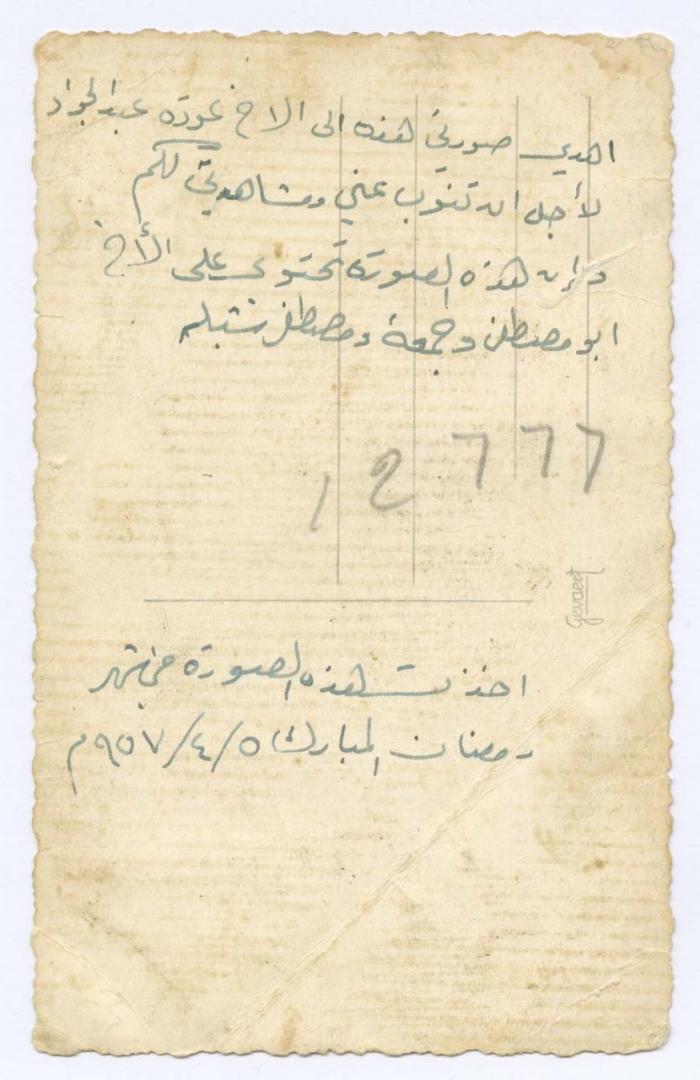 اهدي صورتي هذه الى الاخ عودة عبدالجواد
لأجل ان تنوب عني ومشاهدتي لكم
وإن هذه الصورة تحتوي على الأخ
ابو مصطفى وجمعة ومصطفى
12777
Gevaert
اخذت هذه الصورة في شهر
رمضان المبارك ٥/٤/٩٥٧م